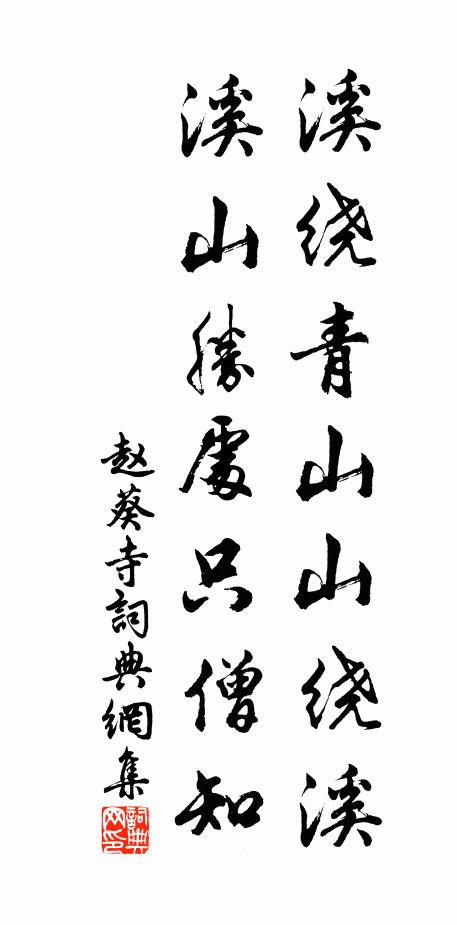 溪绕青山山绕溪
溪山勝處只僧知
赵葵寺詞典網集
詞典网印